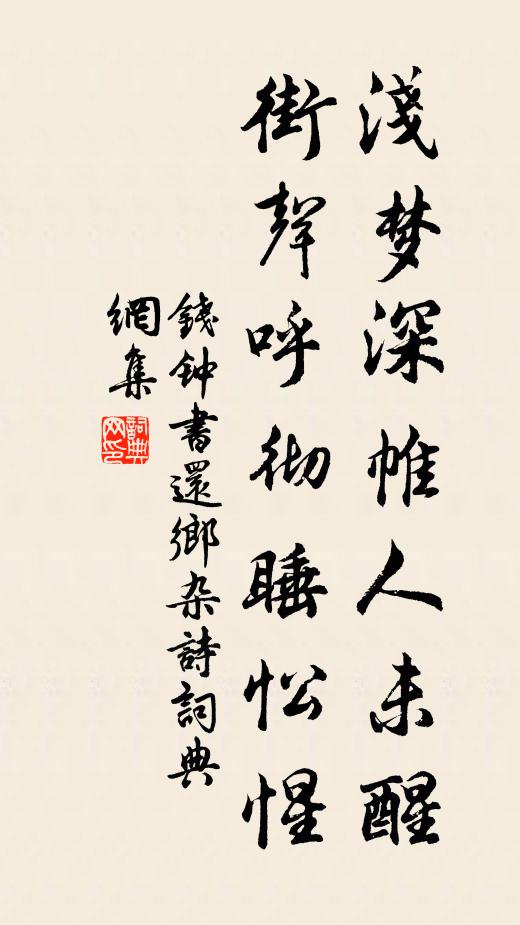 淺梦深帷人未醒
街聲呼彻睡忪惺
錢钟書還鄉杂詩詞典
網集
詞典
网印